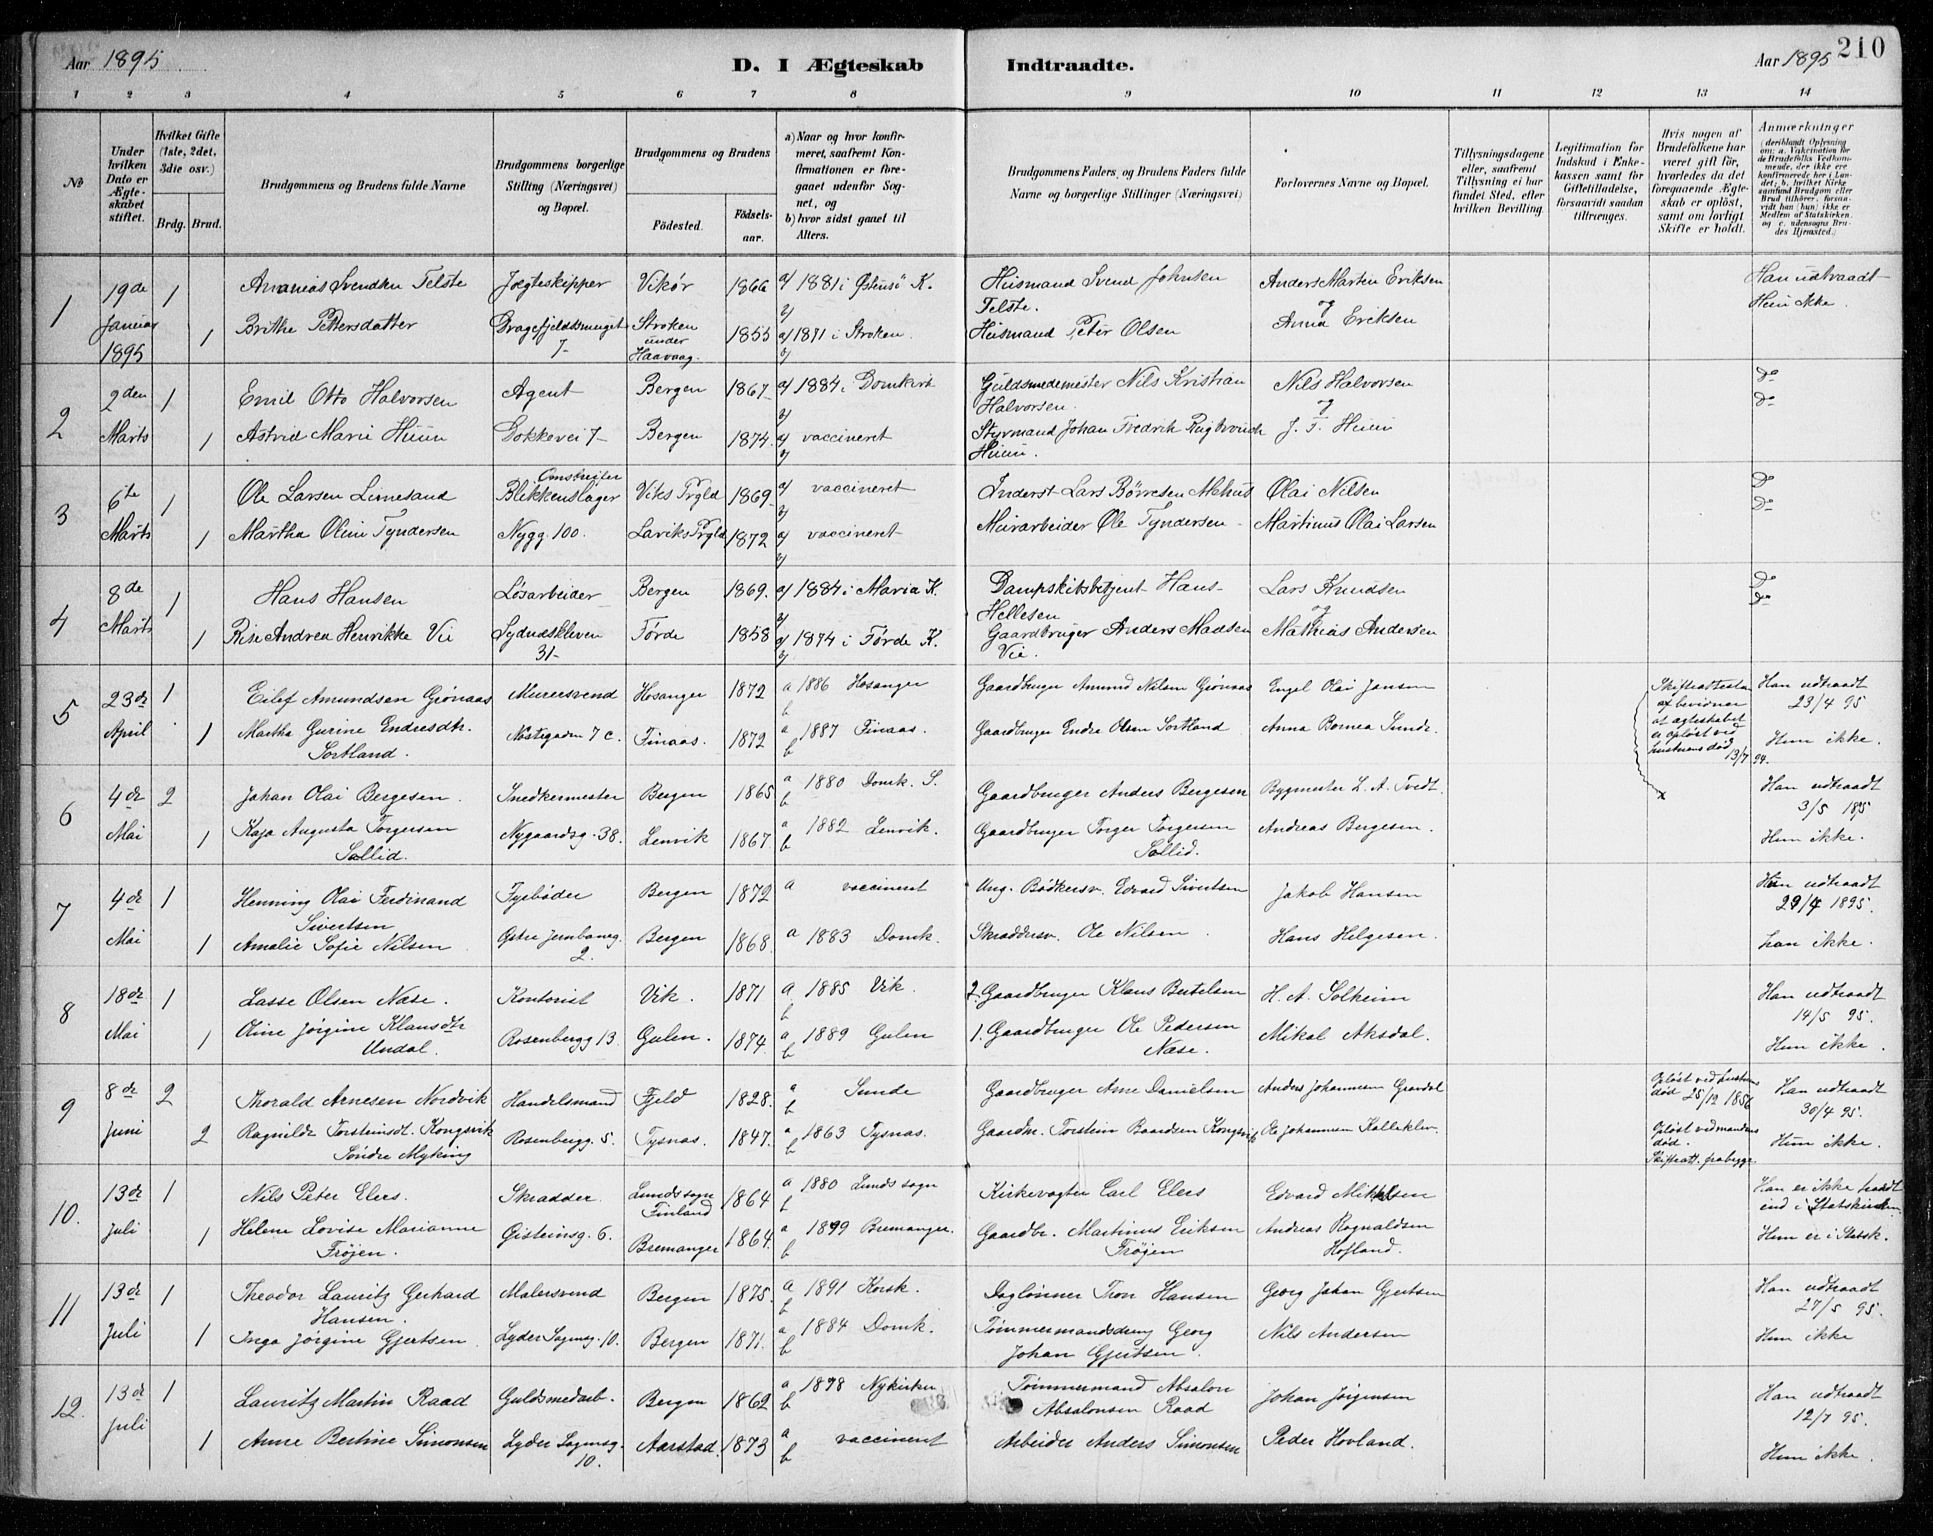 Aar 1895
D. I Ægteskab Indtraadte.
Aar 1895
210
1 2 3 4 5 6 7 8 9 10 11 12 13 14
No
Under hvilken Dato er Ægteskabet stiftet.
Hvilket Gifte (1ste, 2det, 3die osv.)
Brdg. Brud.
Brudgommens og Brudens fulde Navne
Brudgommens borgerlige Stilling (Næringsvei) og Bopæl.
Brudgommens og Brudens
Fødested.
Fødselsaar.
a) Naar og hvor konfirmeret, saafremt Konfirmationen er foregaaet udenfor Sognet, og
b) hvor sidst gaaet til Alters.
Brudgommens Faders og Brudens Faders fulde Navne og borgerlige Stillinger (Næringsvei)
Forlovernes Navne og Bopæl.
Tillysningsdagene eller, saafremt Tillysning ei har fundet Sted, efter hvilken Bevilling.
Legitimation for Indskud i Enkekassen samt for Giftetilladelse, forsaavidt saadan tiltrænges.
Hvis nogen af Brudefolkene har været gift før, hvorledes da det foregaaende Ægteskab er opløst, samt om lovligt Skifte er holdt.
Anmærkninger (deriblandt Oplysning om: a. Vakcination for de Brudefolks Vedkommende, der ikke ere konfirmerede her i Landet; b. hvilket Kirkesamfund Brudgom eller Brud tilhører, forsaavidt han (hun) ikke er Medlem af Statskirken, og c. udensogns Brudes Hjemsted.)
1 19de Januar 1895 1 Ananias Svendsen Telste Jægteskipper Vikør 1866 a/ 1881 i Østensø K. Husmand Svend Johnsen Telste. Anders Martin Eriksen Han udtraadt
b/ og Hun ikke
1 Brithe Pettersdatter Dragefjeldsmuget 7 Stroken under Haavaag. 1855 a/ 1871 i Stroken. Husmand Peter Olsen Anna Ericksen
2 2den Marts 1 Emil Otto Halvorsen Agent Bergen 1867 a/ 1884 i Domkirk Guldsmedemester Nils Kristian Halvorsen. Nils Halvorsen Do
og Do
1 Astrid Marie Huun Gokkevei 7 Bergen 1874. a/ vaccineret Styrmand Johan Fredrik Huun J. F. Huun
3 6te Marts 1 Ole Larsen Limesand Blikkenslager Viks Prgld 1869 a/ vaccineret Inderst Lars Børresen Mehus Olai Nilsen Do
Do
1 Martha Oline Tyndersen Nygg. 100. Laviks Prgld 1872 a/ vaccineret Murarbeider Ole Tyndersen Martinus Olai Larsen
4 8de Marts 1 Hans Hansen Løsarbeider Bergen 1869. a/ 1884 i Maria K. Dampskibsbetjent Hans Hellesen Lars Knudsen Do
og Do
1 Andrea Henrikke Vie Sydneskleven 31 Førde 1858 a/ 1874 i Førde K. Gaardbruger Anders Madsen Vie. Mathias Andersen
5 23de April 1 Eilef Amundsen Grønaas Murersvend Hosanger 1872 a 1886 Hosanger Gaardbruger Amund Nilsen Grønaas Engel Olai Jansen Han udtraadt 23/4 95
1 Martha Gurine Endresdtr. Sortland. Nøstegaden 7 c. Finaas. 1872 a 1887 Finaas. Gaardbruger Endre Olsen Sortland Anna Bornea Sunde. Hun ikke.
Skifteattesten af bevidner at ægteskabet er opløst ved hustruens død 13/7 94.
6 4de Mai 2 Johan Olai Bergesen. Snedkermester Bergen 1865 a 1880 Domk. S. Gaardbruger Anders Bergesen Bygmester L. A. Tvedt. Han udtraadt 3/5 1895
1 Kaja Augusta Torgersen Sollid. Nygaardsg. 38. Lenvik 1867. a 1882 Lenvik. Gaardbruger Torger Torgersen Sollid. Andreas Bergesen. Hun ikke.
7 4de Mai 1 Henning Olai Ferdinand Sivertsen Fyrbøder Bergen 1872 a vaccineret Ung. Bødkersv. Edvard Sivertsen Jakob Hansen Hun udtraadt 29/4 1895.
1 Amalie Sofie Nilsen. Østre Jernbaneg. 2. Bergen 1868. a 1883 Domk. Skraddersv. Ole Nilsen. Hans Helgesen. han ikke.
8 18de Mai 1 Lasse Olsen Næse. Kontorist Vik. 1871 a 1885 Vik. 2. Gaardbruger Klaus Bertelsen H. A. Solheim Han udtraadt 14/5 95.
1 Oline Jørgine Klausdtr Undal. Rosenbergg 13. Gulen. 1874. a 1889 Gulen 1. Gaardbruger Ole Pedersen Næse. Mikal Aksdal. Hun ikke.
9 8de Juni 2 Thorald Arnesen Nordvik Handelsmand Fjeld 1828. a Sunde Gaardbruger Arne Danielsen Anders Johannesen Gravdal Opløst ved hustruens død 25/12 1856 Han udtraadt 30/4 95.
2 Ragnilde Torsteinsdt. Kongsvik Søndre Myking Rosenbergg. 5. Tysnæs. 1847. a 1863 Tysnæs. Gaardbr. Torstein Baardsen Kongsvik Ole Johannesen Kalleklev. Opløst ved mandens død. Skifteatt. frabygge Hun ikke.
10. 13de Juli 1 Nils Peter Elers. Skradder. Lundssogn Finland 1864 a 1880 Lunds sogn Kirkevagter Carl Elers Edvard Mikkelsen Han er ikke traadt ind i Statskirken.
1 Helene Lovise Marianne Frøjen. Gisteinsg. 6. Bremanger 1864. a 1879 Bremanger. Gaardbr. Martinus Eriksen Frøjen Andreas Rognaldsen Hofland. Hun er i Statsk.
11 13de Juli 1 Theodor Lauritz Gerhard Hansen. Malersvend Bergen 1875. a 1891 Korsk. Daglønner Tron Hansen Georg Johan Gjertsen Han udtraadt 27/5 95.
1 Inga Jørgine Gjertsen. Lyder Sagensg. 10. Bergen 1871. a 1884 Domk. Tømmermandsdreng Georg Johan Gjertsen. Nils Andersen Hun ikke
12. 13de Juli 1 Lauritz Martin Raad Guldsmedarb. Bergen 1862 a 1878 Nykirken Tømmermand Absalon Absalonsen Raad Johan Jørgensen Han udtraadt 12/7 95.
1 Anne Bertine Simonsen Lyder Sagensg. 10. Aarstad. 1873 a vaccineret Arbeider Anders Simonsen Peder Hovland. Hun ikke.